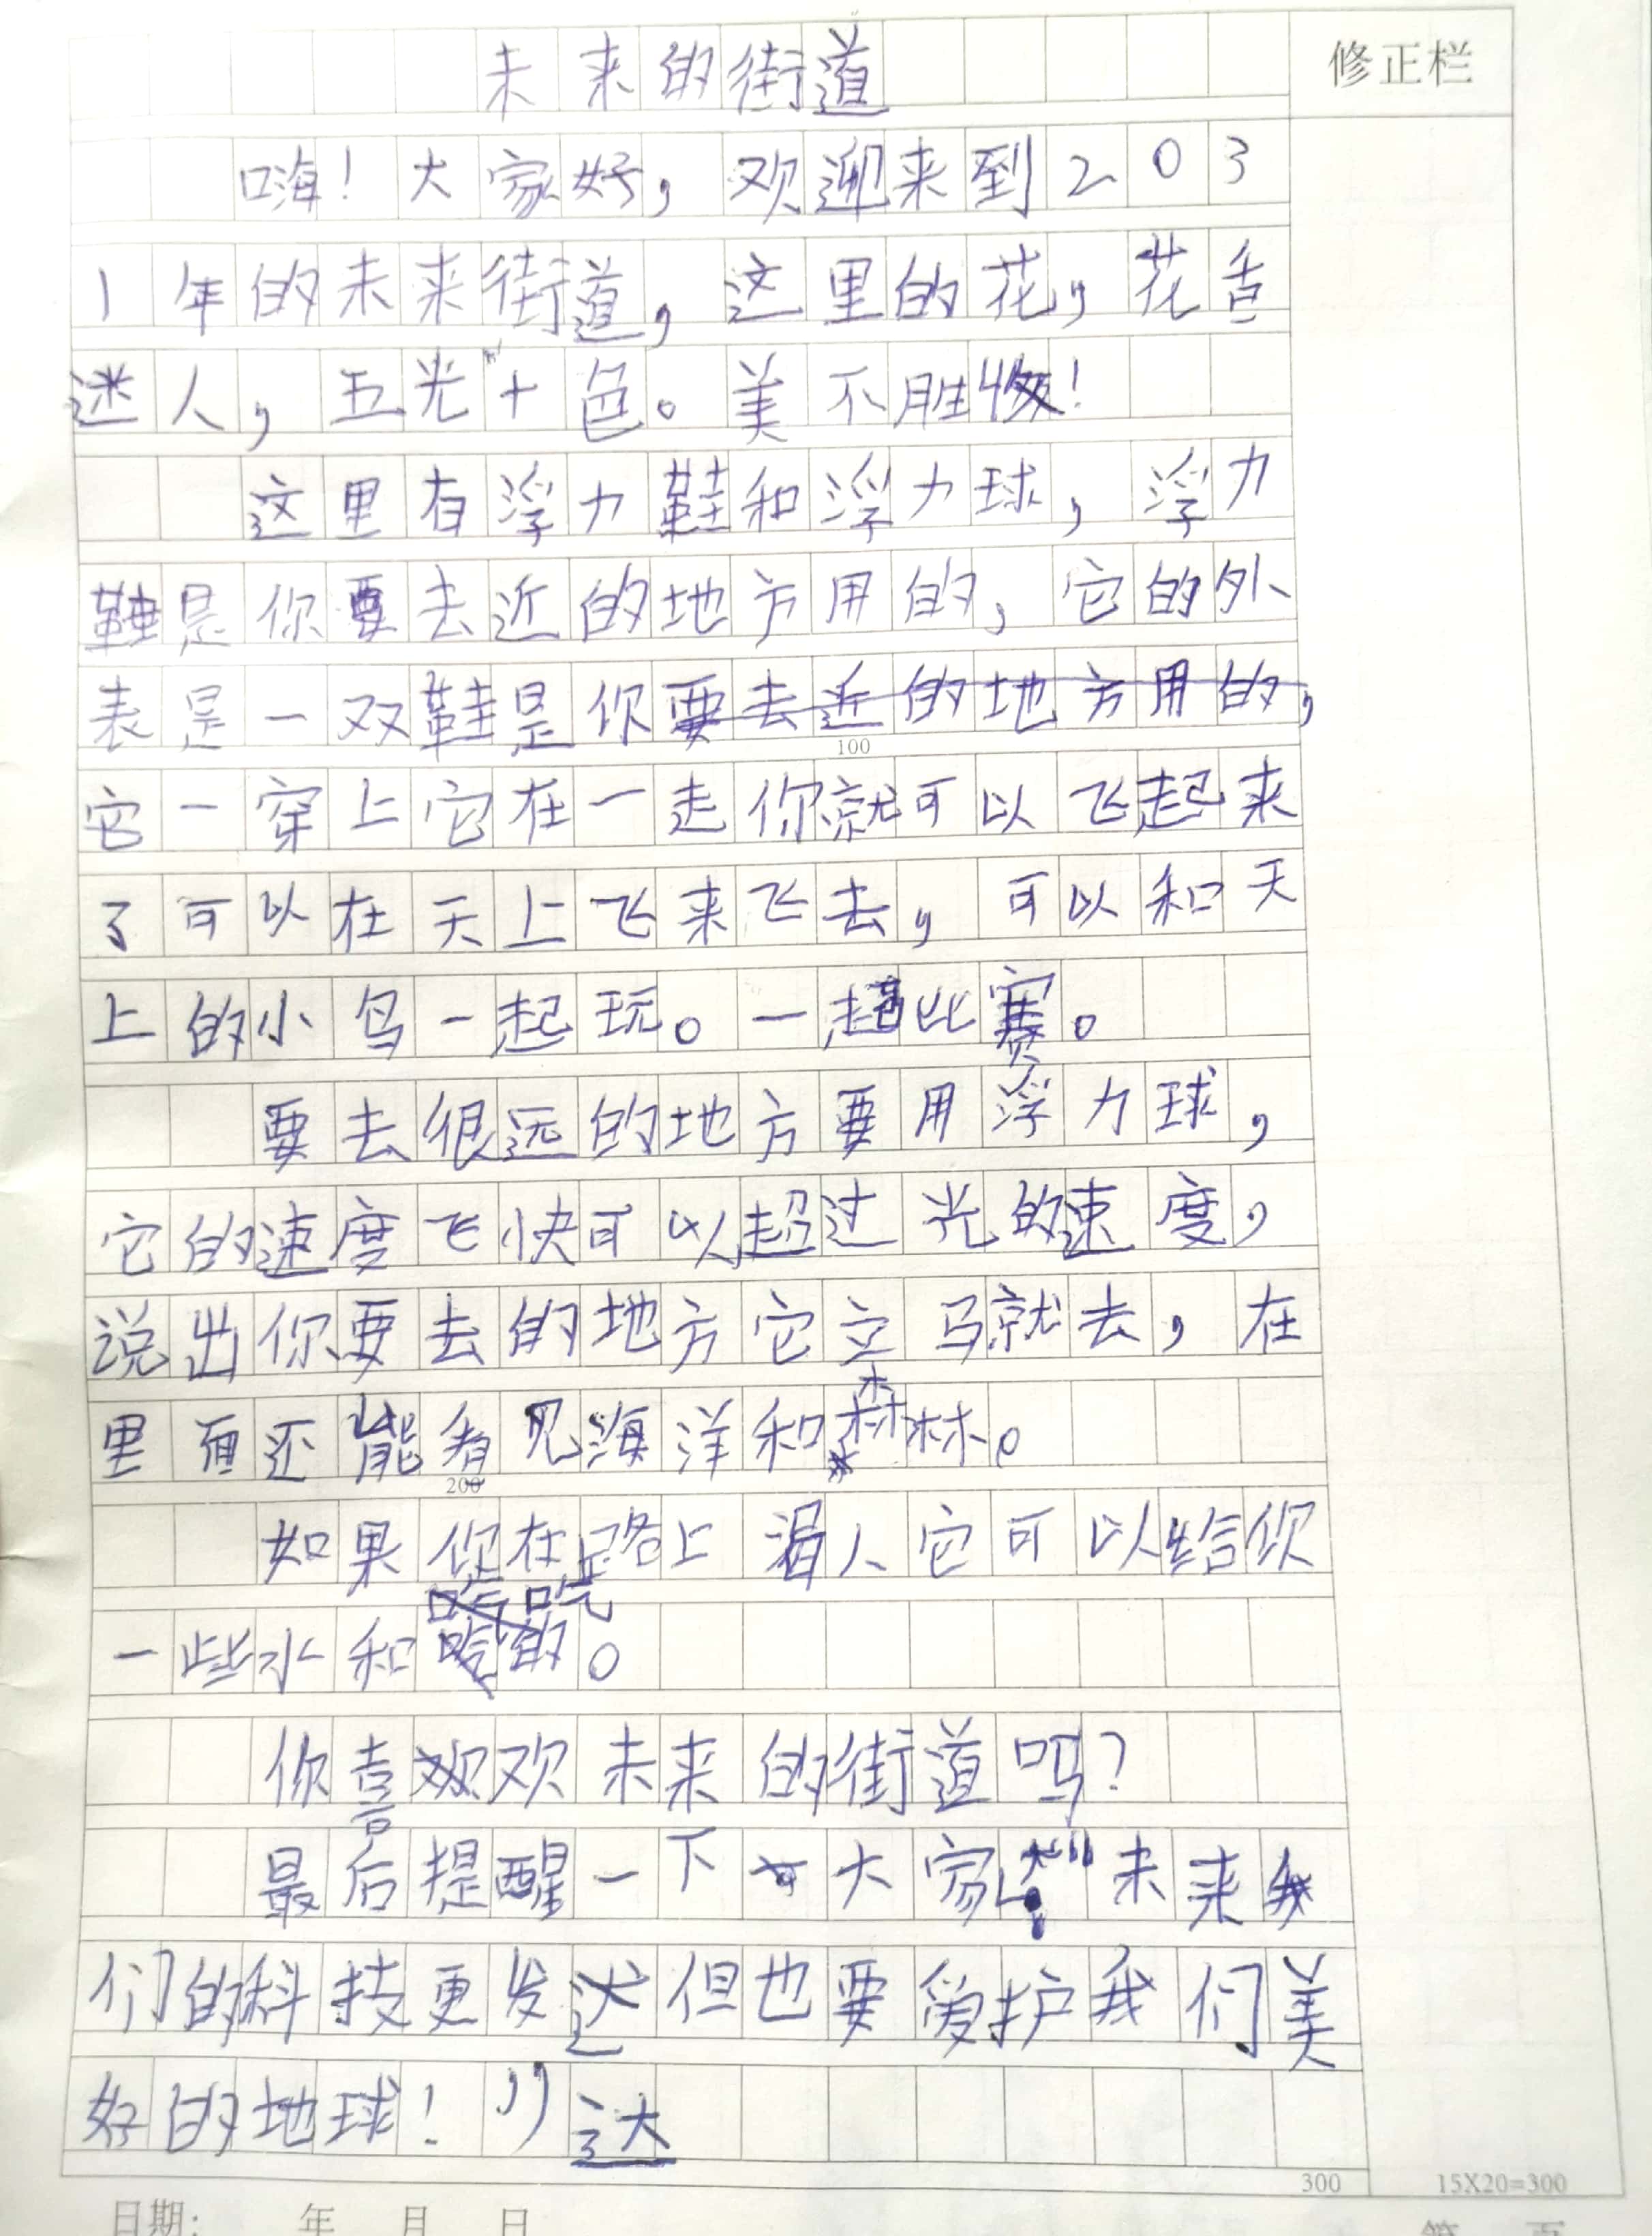 未来的街道
修正栏
嗨！大家好，欢迎来到203
1年的未来街道，这里的花，花香
迷人，五光十色。美不胜收！
这里有浮力鞋和浮力球，浮力
鞋是你要去近的地方用的，它的外
表是一双鞋是你要去近的地方用的，
100
它一穿上它在一走你就可以飞起来
了可以在天上飞来飞去，可以和天
上的小鸟一起玩。一起比赛。
要去很远的地方要用浮力球，
它的速度飞快可以超过光的速度，
说出你要去的地方它立马就去，在
里面还能看见海洋和森林。
200
如果你在路上渴人它可以给你
一些水和吃的。
你喜欢未来的街道吗？
最后提醒一下大家：“未来我
们的科技更发达但也要爱护我们美
好的地球！”达
300
15X20=300
日期： 年 月 日
第 页